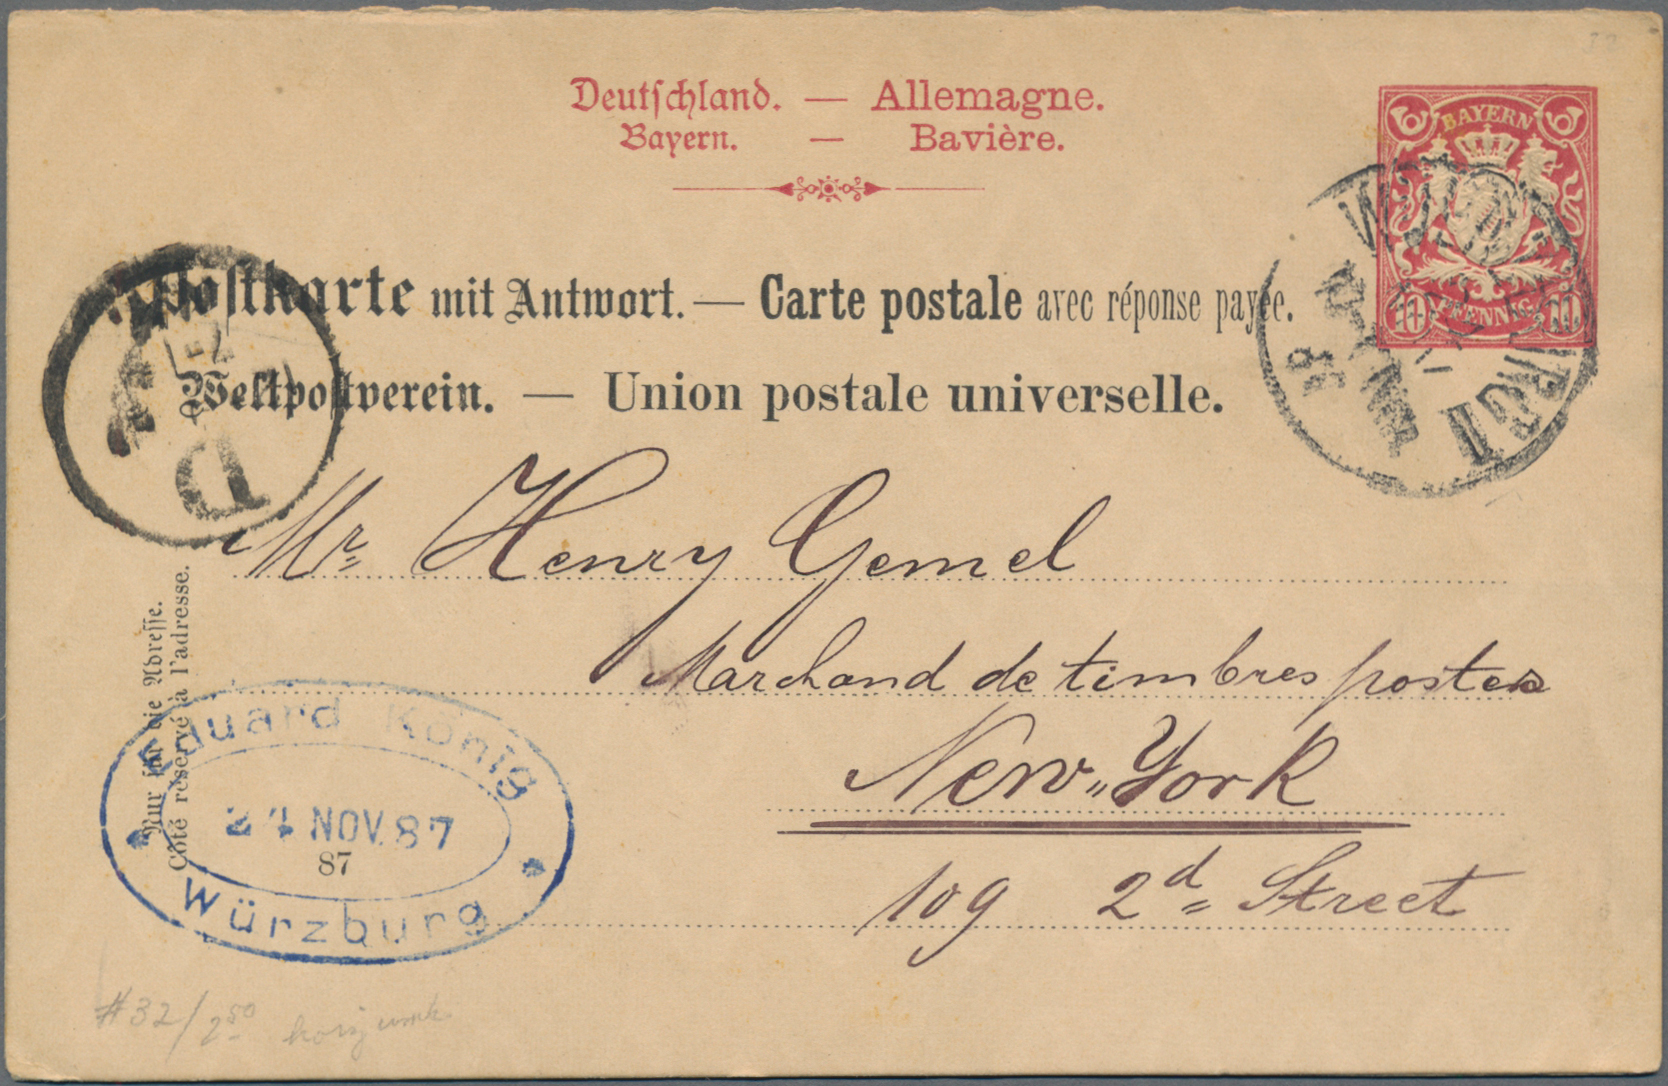 Deutschland. — Allemagne.
Bayern. — Bavière.
BAYERN
10 PFENNIG 10
WÜRZBURG II
NOV
Postkarte mit Antwort. — Carte postale avec réponse payée.
Weltpostverein. — Union postale universelle.
D
Mr. Henry Gemel
Marchand de timbres postes
New-York
109 2d Street
Nur für die Adresse.
Côté réservé à l'adresse.
Eduard König
24 NOV. 87
87
Würzburg
#32/2.50 horiz wmk.